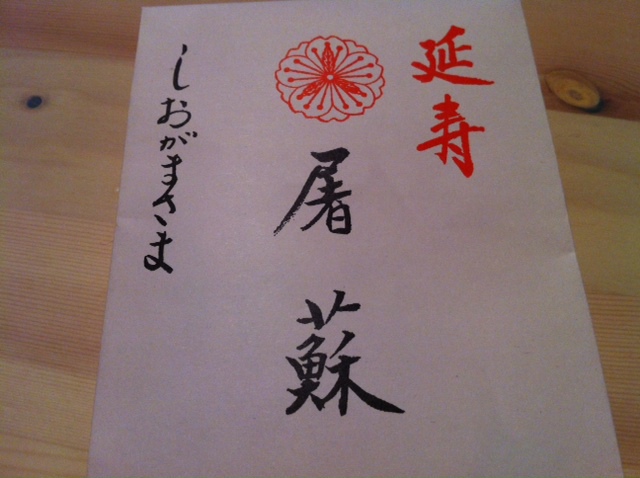 延寿
屠蘇
しおがまさま